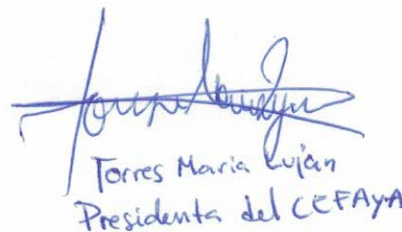 Torres Maria Luján
Presidenta del CEFAyA